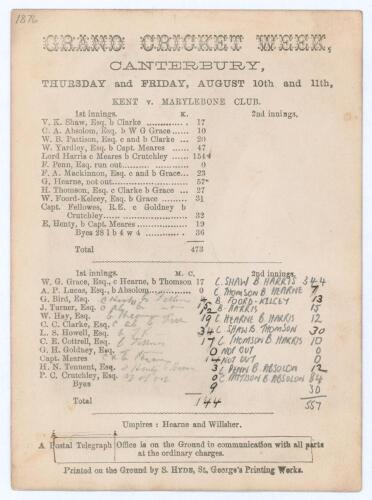 1876
GRAND CRICKET WEEK,
CANTERBURY,
THURSDAY and FRIDAY, AUGUST 10th and 11th,
KENT v. MARYLEBONE CLUB.
1st innings. K. 2nd innings.
V. K. Shaw, Esq. b Clarke ............. 17
C. A. Absolom, Esq. b W G Grace...... 10
W. B. Pattison, Esq. c and b Clarke ... 20
W. Yardley, Esq. b Capt. Meares ...... 47
Lord Harris c Meares b Crutchley ...... 154
F. Penn, Esq. run out .................. 0
F. A. Mackinnon, Esq. c and b Grace... 23
G, Hearne, not out..................... 57
H. Thomson, Esq. c Clarke b Grace ... 27
W. Foord-Kelcey, Esq. b Grace ......... 31
Capt. Fellowes, R.E. c Goldney b
Crutchley............... 32
E, Henty, b Capt. Meares ............... 19
Byes 28 l b 4 w 4 ............... 36
Total 473
1st innings. M. C. 2nd innings.
W. G. Grace, Esq., c Hearne, b Thomson 17 C. SHAW B HARRIS 344
A. P. Lucas, Esq., b Absolom............ 0 C THOMSON B HEARNE 7
G. Bird, Esq. B FOORD-KELCEY 13
J. Turner, Esq. B HARRIS 15
W. Hay, Esq. 19 C HEARNE B HARRIS 12
C. C. Clarke, Esq.
L. S. Howell, Esq. 34 C SHAW B THOMSON 30
C. E. Cottrell, Esq. 17 C THOMSON B HARRIS 10
G. H. Goldney, Esq. 0 NOT OUT 0
Capt. Meares NOT OUT
H. N. Tennent, Esq. 3 C PENN B ABSOLOM 12
P. C. Crutchley, Esq. 0 C PATTISON B ABSOLOM 84
Byes 9 30
Total 144 557
Umpires : Hearne and Willsher.
A Postal Telegraph Office is on the Ground in communication with all parts
at the ordinary charges.
Printed on the Ground by S. HYDE, St, George's Printing Works.